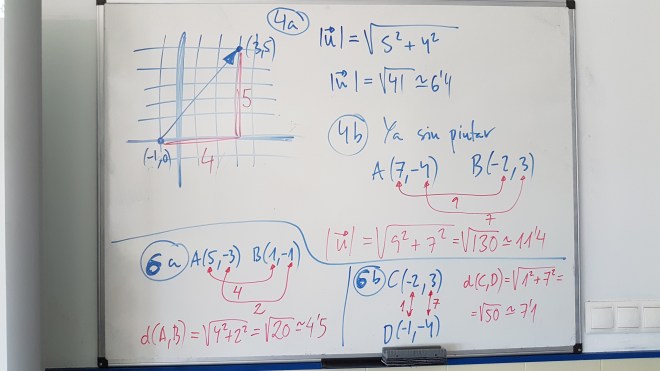 4a
(3,5)
5
4
(-1,0)
|u⃗| = √5² + 4²
|u⃗| = √41 ≃ 6'4
4b Ya sin pintar
A(7,-4) B(-2,3)
9
7
|u⃗| = √9² + 7² = √130 ≃ 11'4
6a A(5,-3) B(1,-1)
4
2
d(A,B) = √4² + 2² = √20 ≃ 4'5
6b C(-2,3)
1 7
D(-1,-4)
d(C,D) = √1² + 7² =
= √50 ≃ 7'1